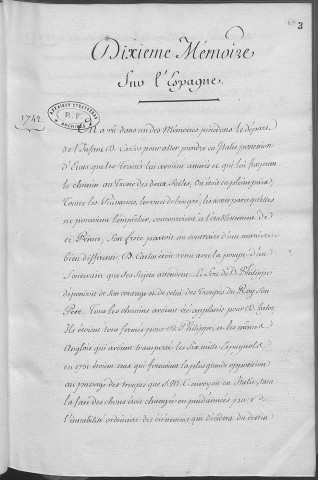 3
Dixieme Mémoire
Sur l'Espagne.
1742.
AFFAIRES ETRANGERES
R.F.
ARCHIVES
On a vû dans un des Mémoires précédens le départ
de l'Infant D. Carlos pour aller prendre en Italie possession
d'Etats que les Traités lui avoient assurés et qui lui frayerent
le chemin au Trone des deux Siciles, On étoit en pleine paix,
Toutes les Puissances, les unes de bon gré, les autres parce qu'elles
ne pouvoient l'empêcher, concouroient à l'établissement de
ce Prince; Son frere partoit au contraire d'une maniere
bien differente, D. Carlos étoit venu avec la pompe d'un
Souverain que ses Sujets attendent. Le Sort de D. Philippe
dépendoit de son courage et de celui des Troupes du Roy son
Pere. Tous les chemins avoient été applanis pour D. Carlos,
Ils étoient tous fermés pour D. Philippe, et les mêmes
Anglois qui avoient transporté les Six mille Espagnols
en 1731 étoient ceux qui formoient la plus grande opposition
au passage des troupes que S. M. C. envoyoit en Italie, tant
la face des choses étoit changée en peu d'années par
l'instabilité ordinaire des évènemens qui décident du destin